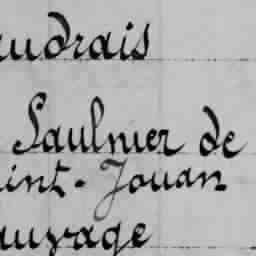 audrais
Saulnier de
int-Jouan
auvage